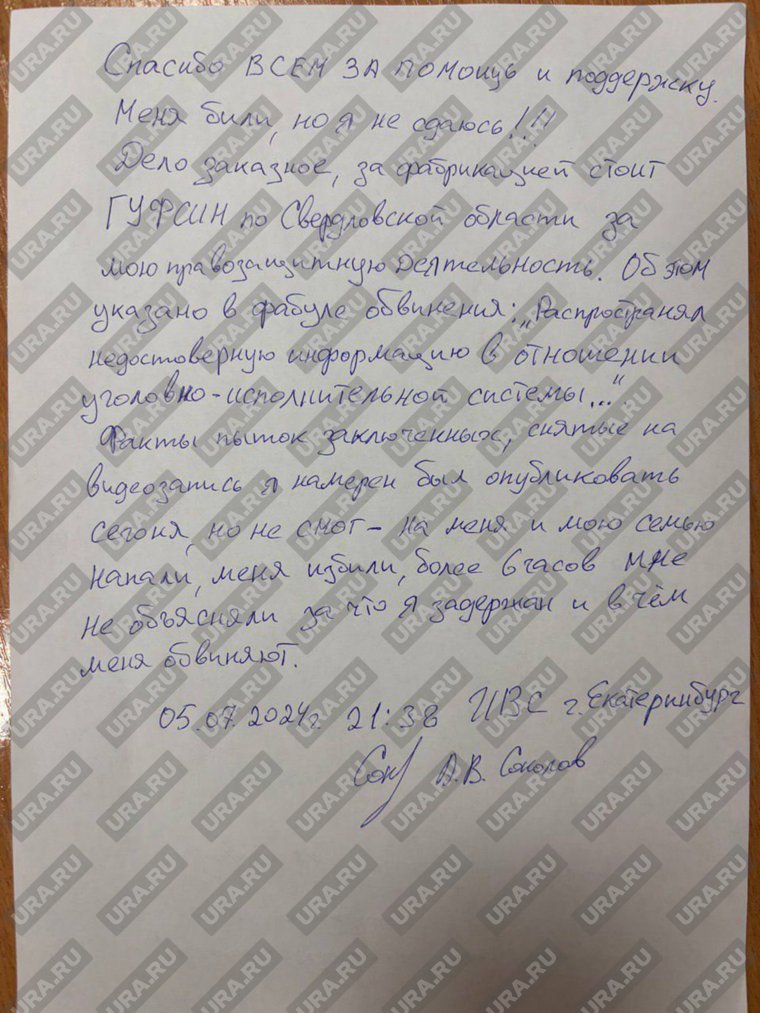 Спасибо ВСЕМ ЗА ПОМОЩЬ и поддержку.
Меня били, но я не сдаюсь!!!
Дело заказное, за фабрикацией стоит
ГУФСИН по Свердловской области за
мою правозащитную деятельность. Об этом
указано в фабуле обвинения: „Распространял
недостоверную информацию в отношении
уголовно-исполнительной системы...“.
Факты пыток заключенных, снятые на
видеозапись я намерен был опубликовать
сегоня, но не смог – на меня и мою семью
напали, меня избили, более 6 часов мне
не объясняли за что я задержан и в чём
меня обвиняют.
05.07.2024г. 21:38 ИВС г. Екатеринбург
Сок А.В. Соколов
URA.RU